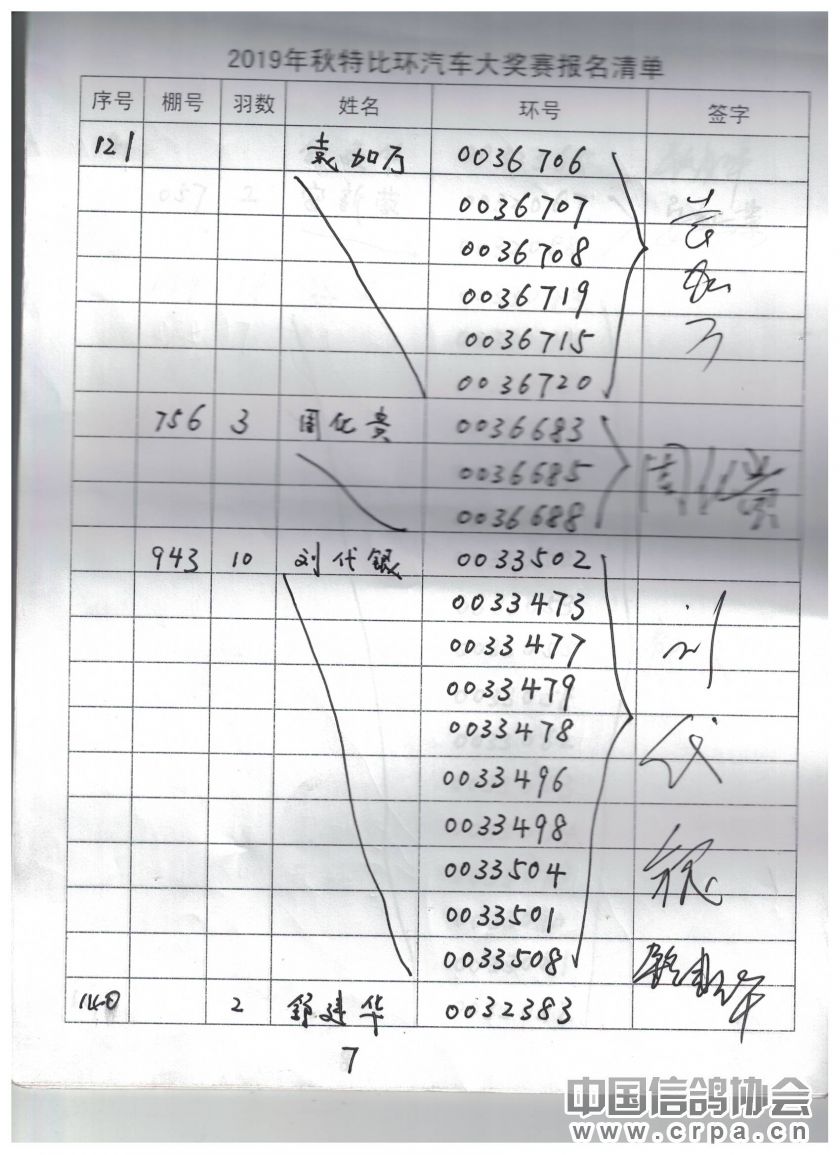 2019年秋特比环汽车大奖赛报名清单
序号 棚号 羽数 姓名 环号 签字
121 袁加万 0036706
0036707
0036708
0036719
0036715
0036720
756 3 周化贵 0036683
0036685
0036688
943 10 刘代银 0033502
0033473
0033477
0033479
0033478
0033496
0033498
0033504
0033501
0033508
2 舒建华 0032383
7
中国信鸽协会
www.crpa.cn